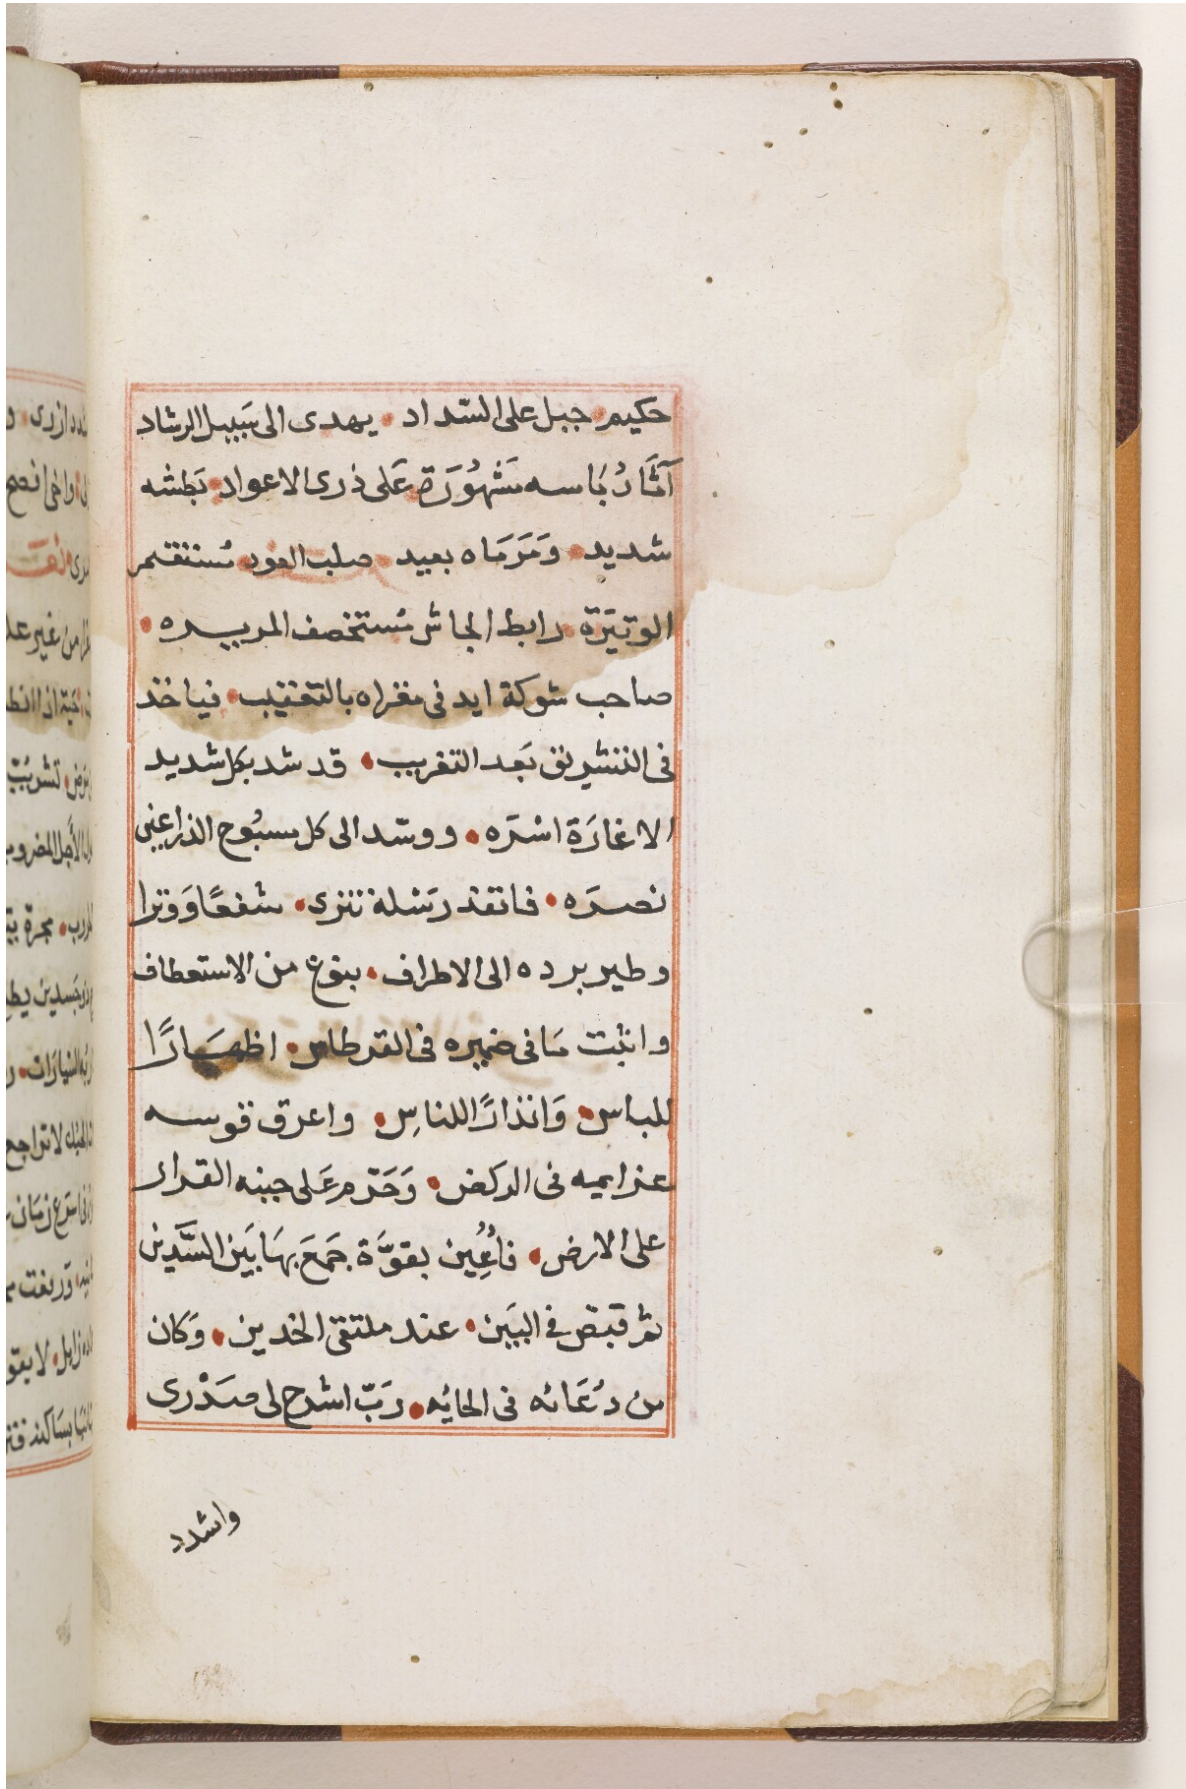 حكيم جبل على السّداد يهدى الى سَبيل الرشاد
آثَارُ بَاسه مَشْهُورَة عَلى ذرى الاعواد بَطشه
شديد وَمَرمَاه بعيد صلب العود مُستقيم
الوتيَرَة رابط الجاش مُستخصف المريره
صاحب شوكة ايد فى مغزاه بالتغفيب فياخذ
فى التشريق بَعد التغريب قد شد بكل شديد
الاغارَة اشرَه ووسّد الى كل سبُوح الذراعين
نصرَه فانقذ رسَله تترى شفعًا وَوترا
وطير برده الى الاطراف بنوع من الاستعطاف
واثبت مَا فى ضميره فى القرطاس اظهَارًا
للباس وَانذارًا للناسِ واعرق قوسه
عزايمه فى الركض وَحَرّم عَلى جبنه القرار
على الارض فأُعِين بقوَّة جَمعَ بهَا بَين السَّدين
ثم قبض فى البيَن عند ملتقى الخدين وَكان
من دُعَائه فى الحايه رَبّ اشرح لى صَدْرى
واشدد